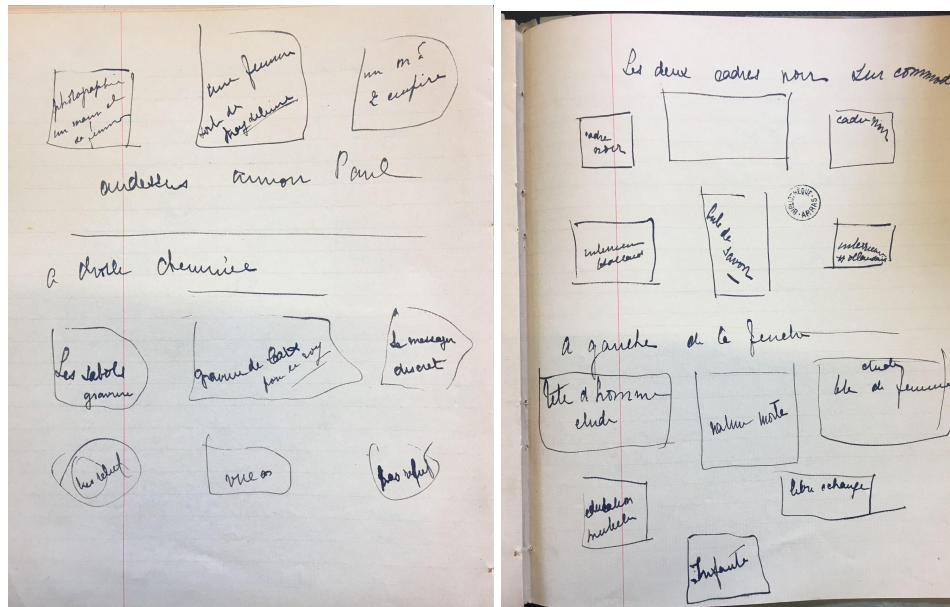 photographie
un mari et
de femme
une femme
sorte de
Magdeleine
un
audessus Paul
A droite cheminée
Les sabots
gravure
gravure de
Le messager
discret
bas relief
vue
bas relief
Les deux cadres noirs sur commode
cadre
noir
cadre noir
interieur
hollandais
bulle de savon
interieur
Hollandais
BIBLIOTHÈQUE ARRAS
A gauche de la fenetre
tete d homme
etude
nature morte
etude
tete de femme
education
libre echange
Infante